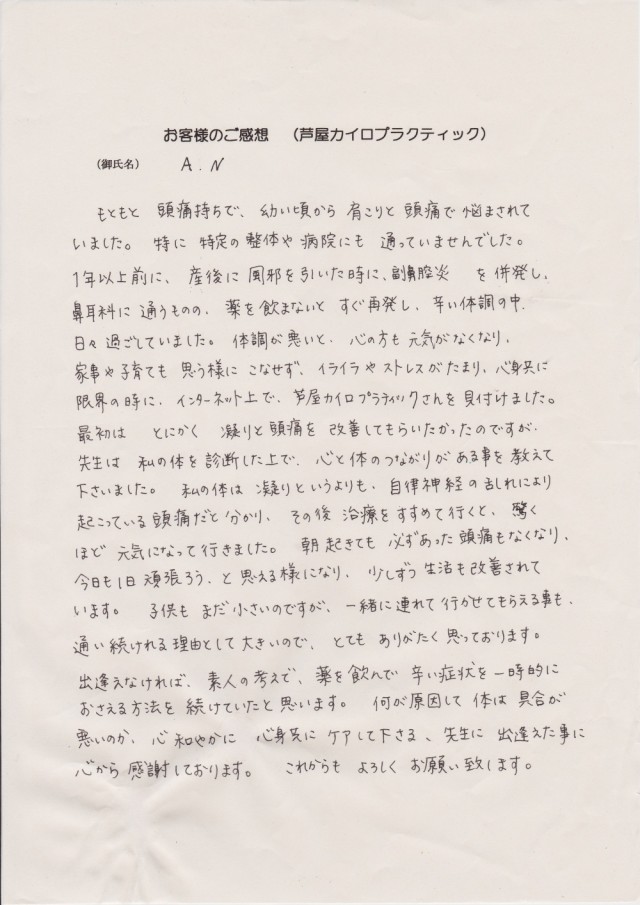 お客様のご感想 (芦屋カイロプラクティック)
(御氏名) A.N
もともと 頭痛持ちで、幼い頃から 肩こりと 頭痛で 悩まされて
いました。 特に 特定の 整体や 病院にも 通っていませんでした。
1年以上前に、産後に 風邪を引いた時に、副鼻腔炎 を 併発し、
鼻耳科に 通うものの、薬を飲まないと すぐ再発し、辛い体調の中、
日々 過ごしていました。体調が悪いと、心の方も 元気がなくなり、
家事や子育ても 思う様に こなせず、イライラや ストレスがたまり、心身共に
限界の時に、インターネット上で、芦屋カイロプラティックさんを見付けました。
最初は とにかく 凝りと頭痛を 改善してもらいたかったのですが、
先生は 私の体を 診断した上で、心と体のつながりがある事を 教えて
下さいました。 私の体は 凝りというよりも、自律神経の乱れにより
起こっている 頭痛だと 分かり、その後 治療をすすめて行くと、驚く
ほど 元気になって行きました。 朝起きても 必ずあった 頭痛もなくなり、
今日も1日 頑張ろう、と 思える様になり、少しずつ 生活も改善されて
います。 子供も まだ小さいのですが、一緒に連れて 行かせてもらえる事も、
通い続けれる理由として 大きいので、とても ありがたく 思っております。
出逢えなければ、素人の考えで、薬を飲んで 辛い症状を 一時的に
おさえる方法を 続けていたと思います。 何が原因して 体は 具合が
悪いのか、心 和やかに 心身共に ケアして下さる、先生に 出逢えた事に
心から 感謝しております。 これからも よろしく お願い致します。